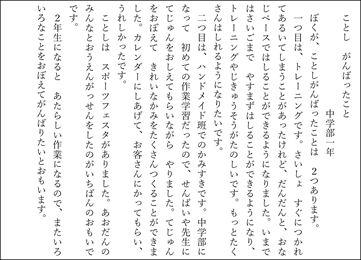 ことし がんばったこと
中学部一年
ぼくが、ことしがんばったことは 2つあります。
一つ目は、トレーニングです。さいしょ すぐにつかれ
てあるいてしまうことがあったけれど、だんだんと、おな
じペースではしることができるようになりました。いまで
はさいごまで やすまずはしることができるようになり、
トレーニングやじきゅうそうがたのしいです。もっとたく
さんはしれるようになりたいです。
二つ目は、ハンドメイド班でのかみすきです。中学部に
なって 初めての作業学習だったので、せんぱいや先生に
てじゅんをおしえてもらいながら やりました。てじゅん
をおぼえて きれいなかみをたくさんつくることができま
した。カレンダーにしあげて、お客さんにかってもらい、
うれしかったです。
ことしは スポーツフェスタがありました。あおだんの
みんなとおうえんがっせんをしたのがいちばんのおもいで
です。
2年生になると あたらしい作業になるので、またいろ
いろなことをおぼえてがんばりたいとおもいます。